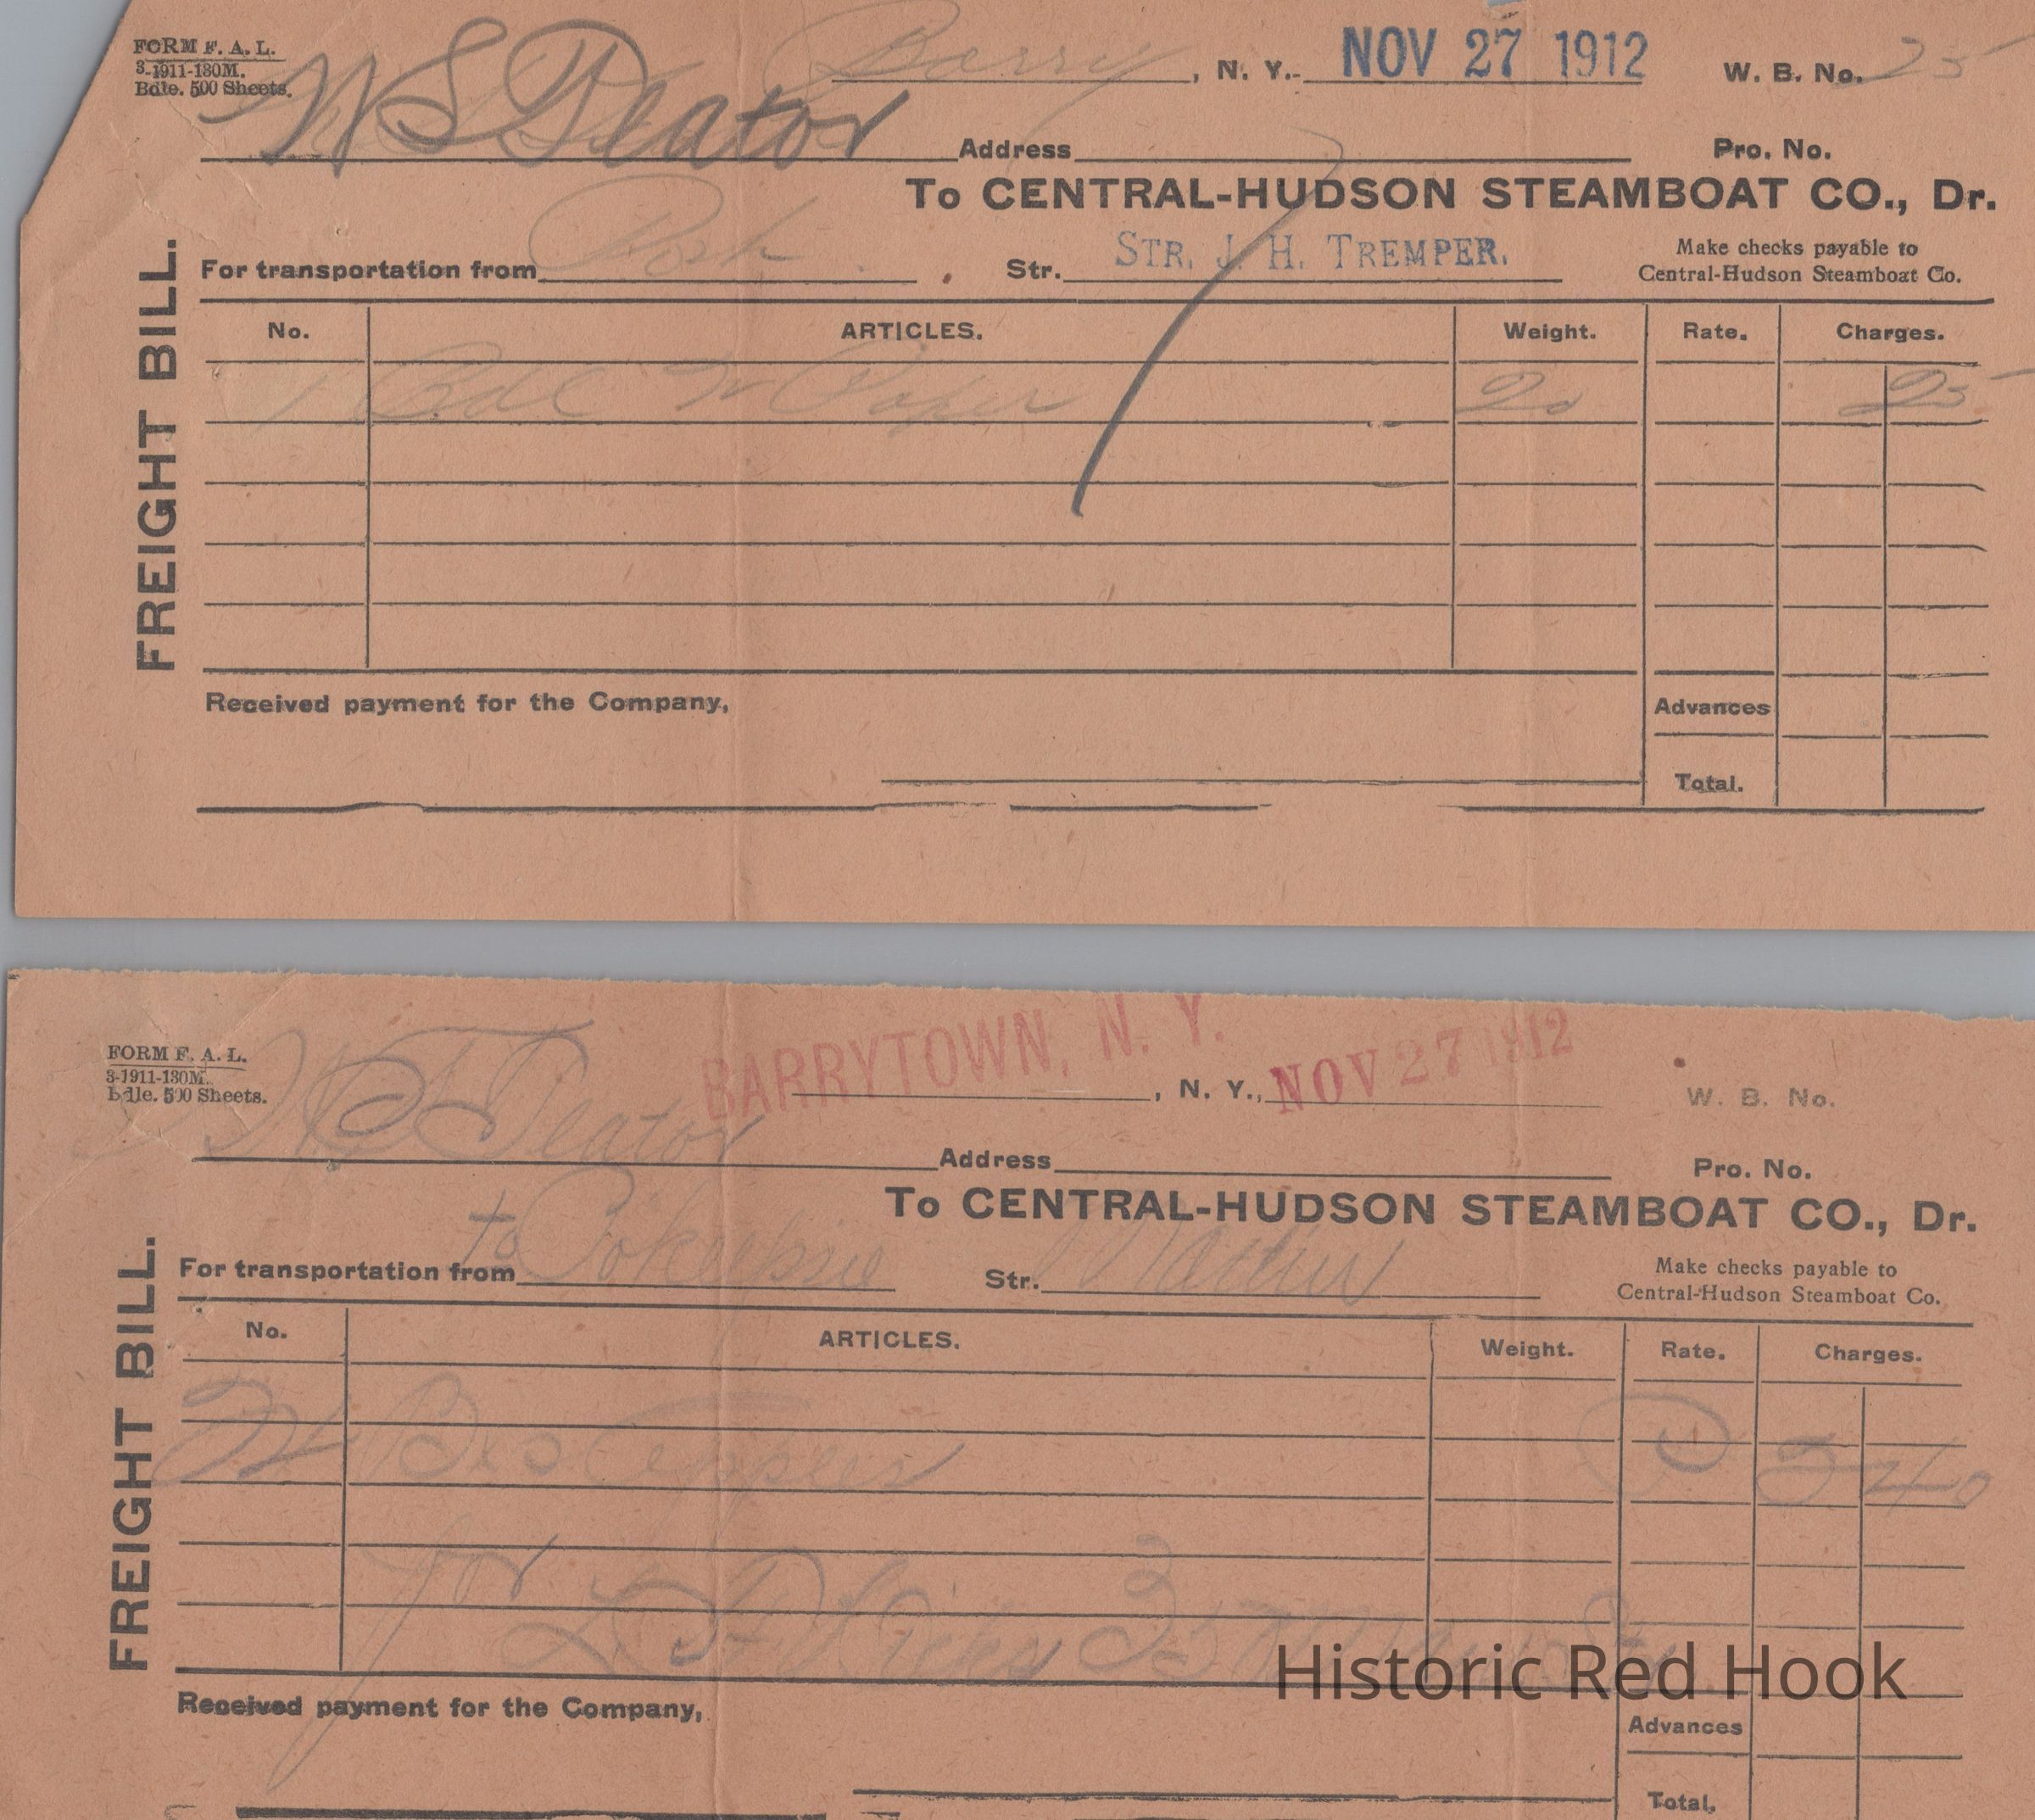 FORM F. A. L.
3-1911-130M.
Bdle. 500 Sheets.
Barry, N. Y. NOV 27 1912 W. B. No. 25
W S Teator Address Pro. No.
To CENTRAL-HUDSON STEAMBOAT CO., Dr.
For transportation from Pok Str. STR. J. H. TREMPER. Make checks payable to
Central-Hudson Steamboat Co.
FREIGHT BILL.
No. ARTICLES. Weight. Rate. Charges.
1 Bdl W Paper 20 25
Received payment for the Company,
Advances
Total.
FORM F. A. L.
3-1911-130M.
Bdle. 500 Sheets.
BARRYTOWN, N. Y., N. Y., NOV 27 1912 W. B. No.
W S Teator Address Pro. No.
To CENTRAL-HUDSON STEAMBOAT CO., Dr.
For transportation from to Pokeepsie Str. Make checks payable to
Central-Hudson Steamboat Co.
FREIGHT BILL.
No. ARTICLES. Weight. Rate. Charges.
Bxs Apples 40
for
Historic Red Hook
Received payment for the Company,
Advances
Total,